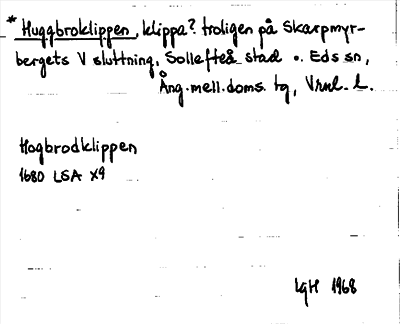 * Huggbroklippen, klippa? troligen på Skarpmyr-
bergets V sluttning, Sollefteå stad o. Eds sn,
Ång.mell.doms. tg, Vrnl. l.
Hogbrodklippen
1680 LSA X9
LgH 1968